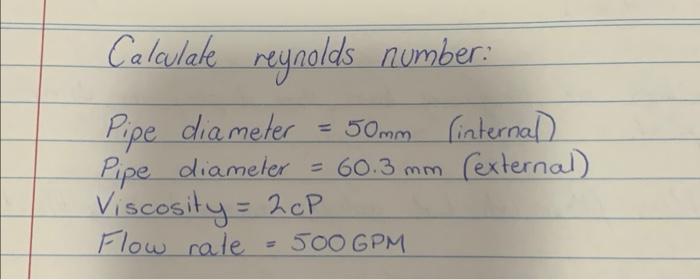 Calculate reynolds number:
Pipe diameter = 50mm (internal)
Pipe diameter = 60.3 mm (external)
Viscosity = 2cP
Flow rate = 500 GPM